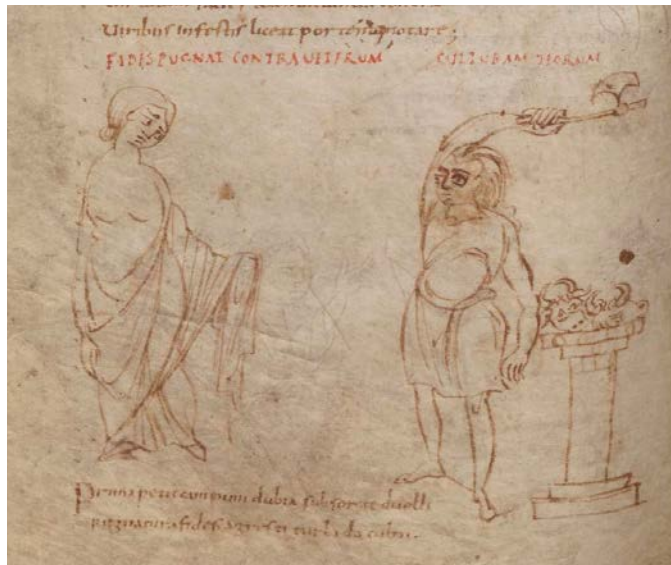 Uiribus infestis liceat portenta notare;
FIDES PUGNAT CONTRA UETERUM CULTURAM DEORUM
Prima petit campum dubia sub sorte duelli
pugnatura fides agresti turbida cultu.